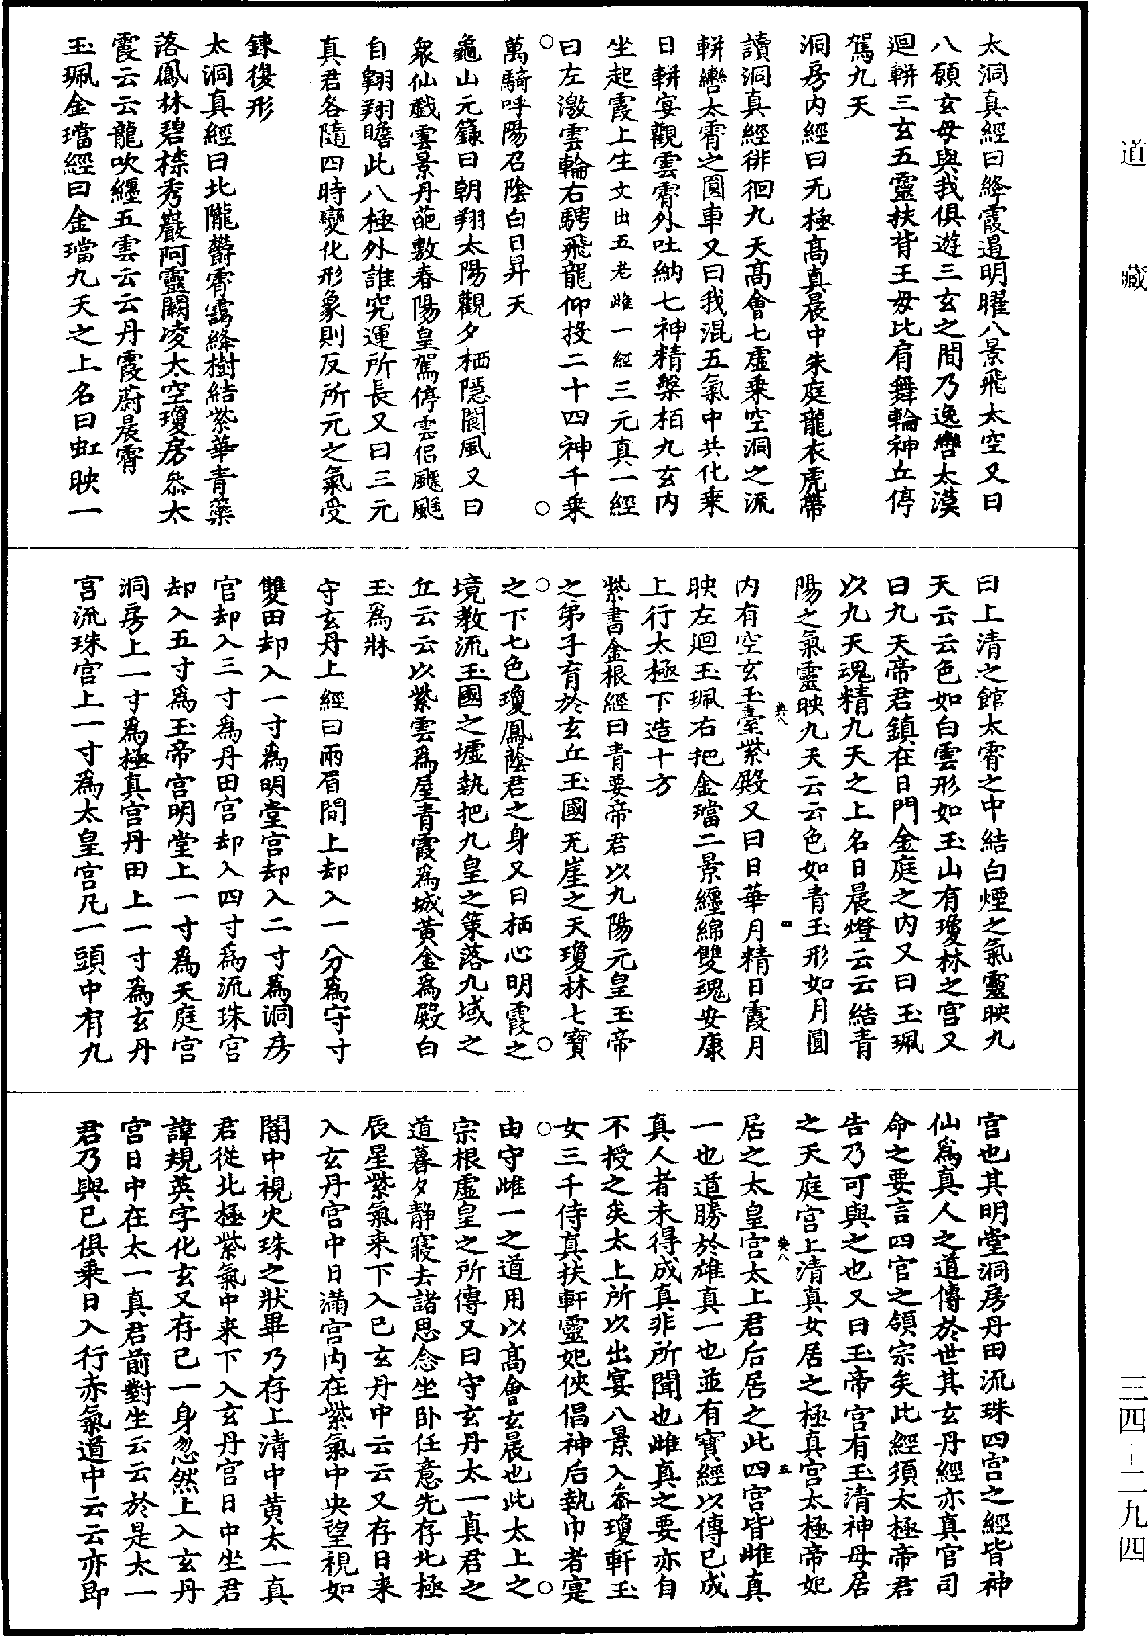 道藏
三四-二九四
太洞真經曰絳霞邅明曜八景飛太空又曰
八願玄母與我俱遊三玄之間乃逸轡太漠
迴輧三玄五靈扶背王母比肩舞輪神丘停
駕九天
洞房內經曰无極高真晨中朱庭龍衣虎帶
讀洞真經徘徊九天高會七虛乘空洞之流
輧轡太霄之圓車又曰我混五氣中共化乘
日輧宴觀雲霄外吐納七神精槃桓九玄內
坐起霞上生文出五老雌一經三元真一經
曰左激雲輪右騁飛龍仰投二十四神千乘
萬騎呼陽召陰白日昇天
龜山元籙曰朝翔太陽觀夕栖隱閬風又曰
衆仙戲雲景丹葩敷春陽皇駕停雲侶飀颸
自翱翔瞻此八極外誰究運所長又曰三元
真君各隨四時變化形象則反所元之氣受
鍊復形
太洞真經曰北隴欝霄靄絳樹結紫華青蘂
落鳳林碧榛秀巖阿靈闕凌太空瓊房叅太
霞云云龍吹纏五雲云云丹霞蔚晨霄
玉珮金璫經曰金璫九天之上名曰虹映一
曰上清之館太霄之中結白煙之氣靈映九
天云云色如白雲形如玉山有瓊林之宮又
曰九天帝君鎮在日門金庭之內又曰玉珮
以九天魂精九天之上名曰晨燈云云結青
陽之氣靈映九天云云色如青玉形如月圓
內有空玄玉臺紫殿又曰日華月精日霞月
映左迴玉珮右把金璫二景纏綿雙魂安康
上行太極下造十方
紫書金根經曰青要帝君以九陽元皇玉帝
之弟子育於玄丘玉國无崖之天瓊林七寶
之下七色瓊鳳蔭君之身又曰栖心明霞之
境教流玉國之墟執把九皇之策落九域之
丘云云以紫雲爲屋青霞爲城黃金爲殿白
玉爲牀
守玄丹上經曰兩眉間上却入一分爲守寸
雙田却入一寸爲明堂宮却入二寸爲洞房
宮却入三寸爲丹田宮却入四寸爲流珠宮
却入五寸爲玉帝宮明堂上一寸爲天庭宮
洞房上一寸爲極真宮丹田上一寸爲玄丹
宮流珠宮上一寸爲太皇宮凡一頭中有九
宮也其明堂洞房丹田流珠四宮之經皆神
仙爲真人之道傳於世其玄丹經亦真官司
命之要言四宮之領宗矣此經須太極帝君
告乃可與之也又曰玉帝宮有玉清神母居
之天庭宮上清真女居之極真宮太極帝妃
居之太皇宮太上君后居之此四宮皆雌真
一也道勝於雄真一也並有寶經以傳已成
真人者未得成真非所聞也雌真之要亦自
不授之矣太上所以出宴八景入叅瓊軒玉
女三千侍真扶軒靈妃俠倡神后執巾者寔
由守雌一之道用以高會玄晨也此太上之
宗根虛皇之所傳又曰守玄丹太一真君之
道暮夕靜寢去諸思念坐卧任意先存北極
辰星紫氣來下入己玄丹中云云又存日來
入玄丹宮中日滿宮內在紫氣中央望視如
闇中視火珠之狀畢乃存上清中黃太一真
君從北極紫氣中來下入玄丹宮日中坐君
諱規英字化玄又存己一身忽然上入玄丹
宮日中在太一真君前對坐云云於是太一
君乃與己俱乘日入行赤氣道中云云亦即